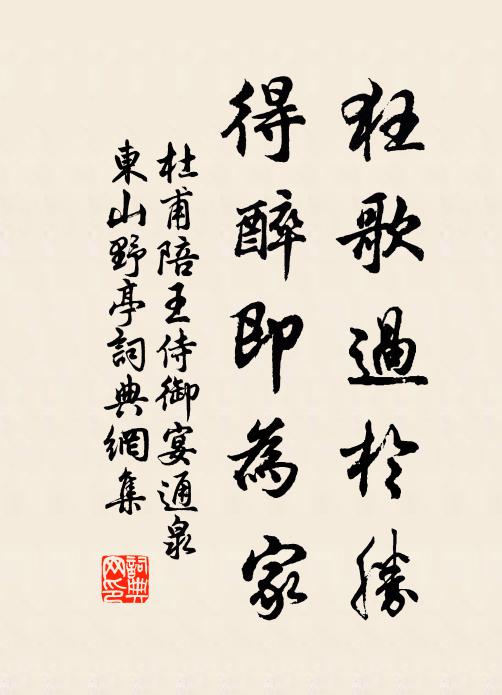 狂歌過於勝
得醉即為家
杜甫陪王侍御宴通泉
東山野亭詞典網集
詞典网印